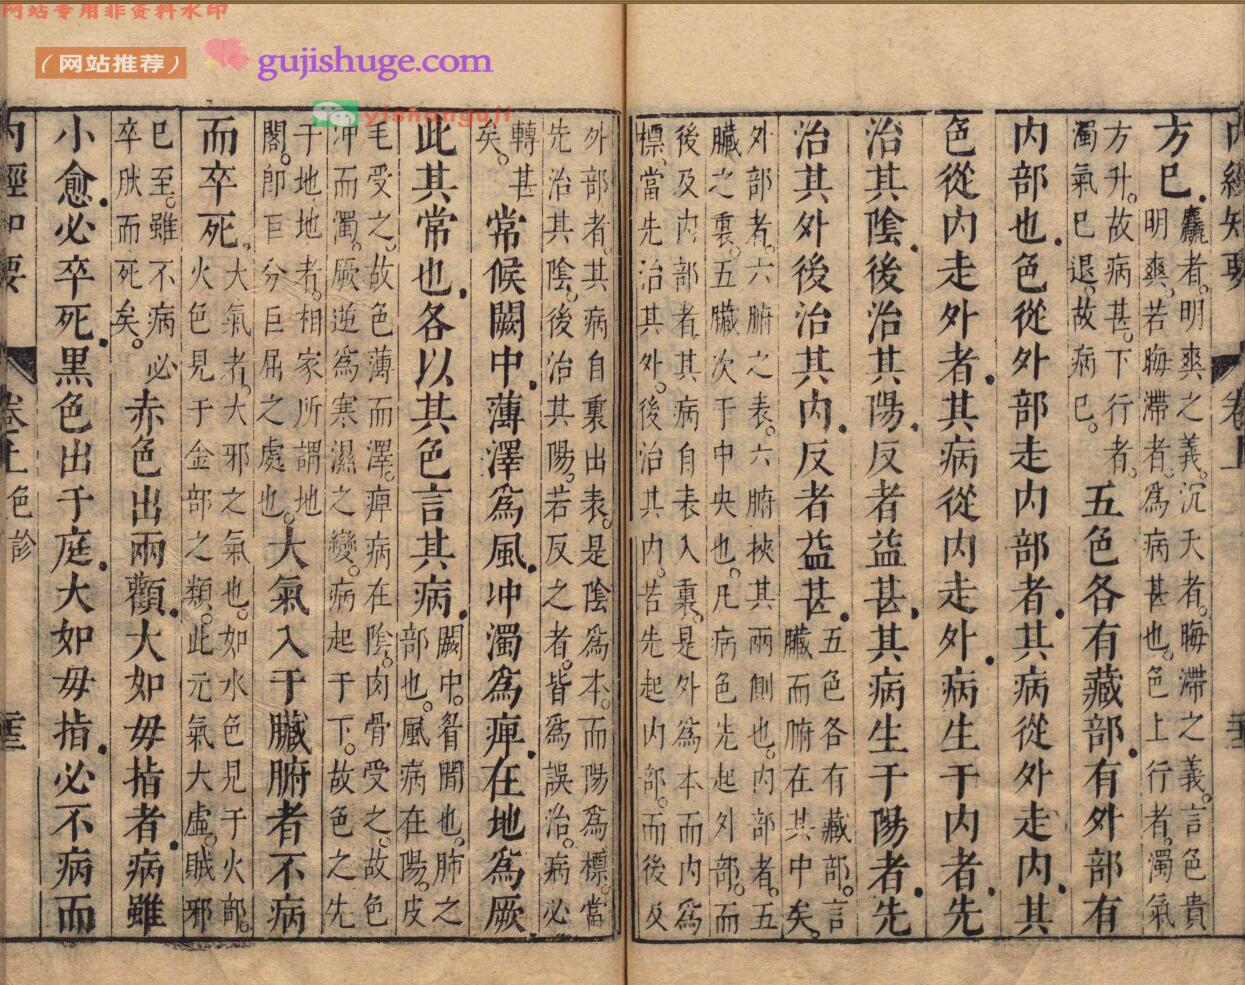 网站专用非资料水印
(网站推荐)
gujishuge.com
yishanguji
內經知要
卷上
方已。
麤者。明爽之義。沉夭者。晦滯之義。言色貴
明爽。若晦滯者。為病甚也。色上行者。濁氣
方升。故病甚。下行者。
濁氣已退。故病已。
五色各有藏部。有外部有
內部也。色從外部走內部者。其病從外走內。其
色從內走外者。其病從內走外。病生于內者。先
治其陰。後治其陽。反者益甚。其病生于陽者。先
治其外後治其內。反者益甚。
五色各有藏部。言
臟而腑在其中矣。
外部者。六腑之表。六腑挾其兩側也。內部者。五
臟之裏。五臟次于中央也。凡病色先起外部。而
後及內部者。其病自表入裏。是外為本而內為
標。當先治其外。後治其內。若先起內部。而後及
外部者。其病自裏出表。是陰為本。而陽為標。當
先治其陰。後治其陽。若反之者。皆為誤治。病必
轉甚
矣。
常候闕中。薄澤為風。冲濁為痺。在地為厥。
此其常也。各以其色言其病。
闕中。眉間也。肺之
部也。風病在陽。皮
毛受之。故色薄而澤。痺病在陰。肉骨受之。故色
冲而濁。厥逆為寒濕之變。病起于下。故色之先
于地。地者。相家所謂地
閣。即巨分巨屈之處也。
大氣入于臟腑者不病
而卒死。
大氣者。大邪之氣也。如水色見于火部。
火色見于金部之類。此元氣大虛。賊邪
已至。雖不病必
卒然而死矣。
赤色出兩顴。大如毋指者。病雖
小愈。必卒死。黑色出于庭。大如毋指。必不病而
內經知要
卷上
色診